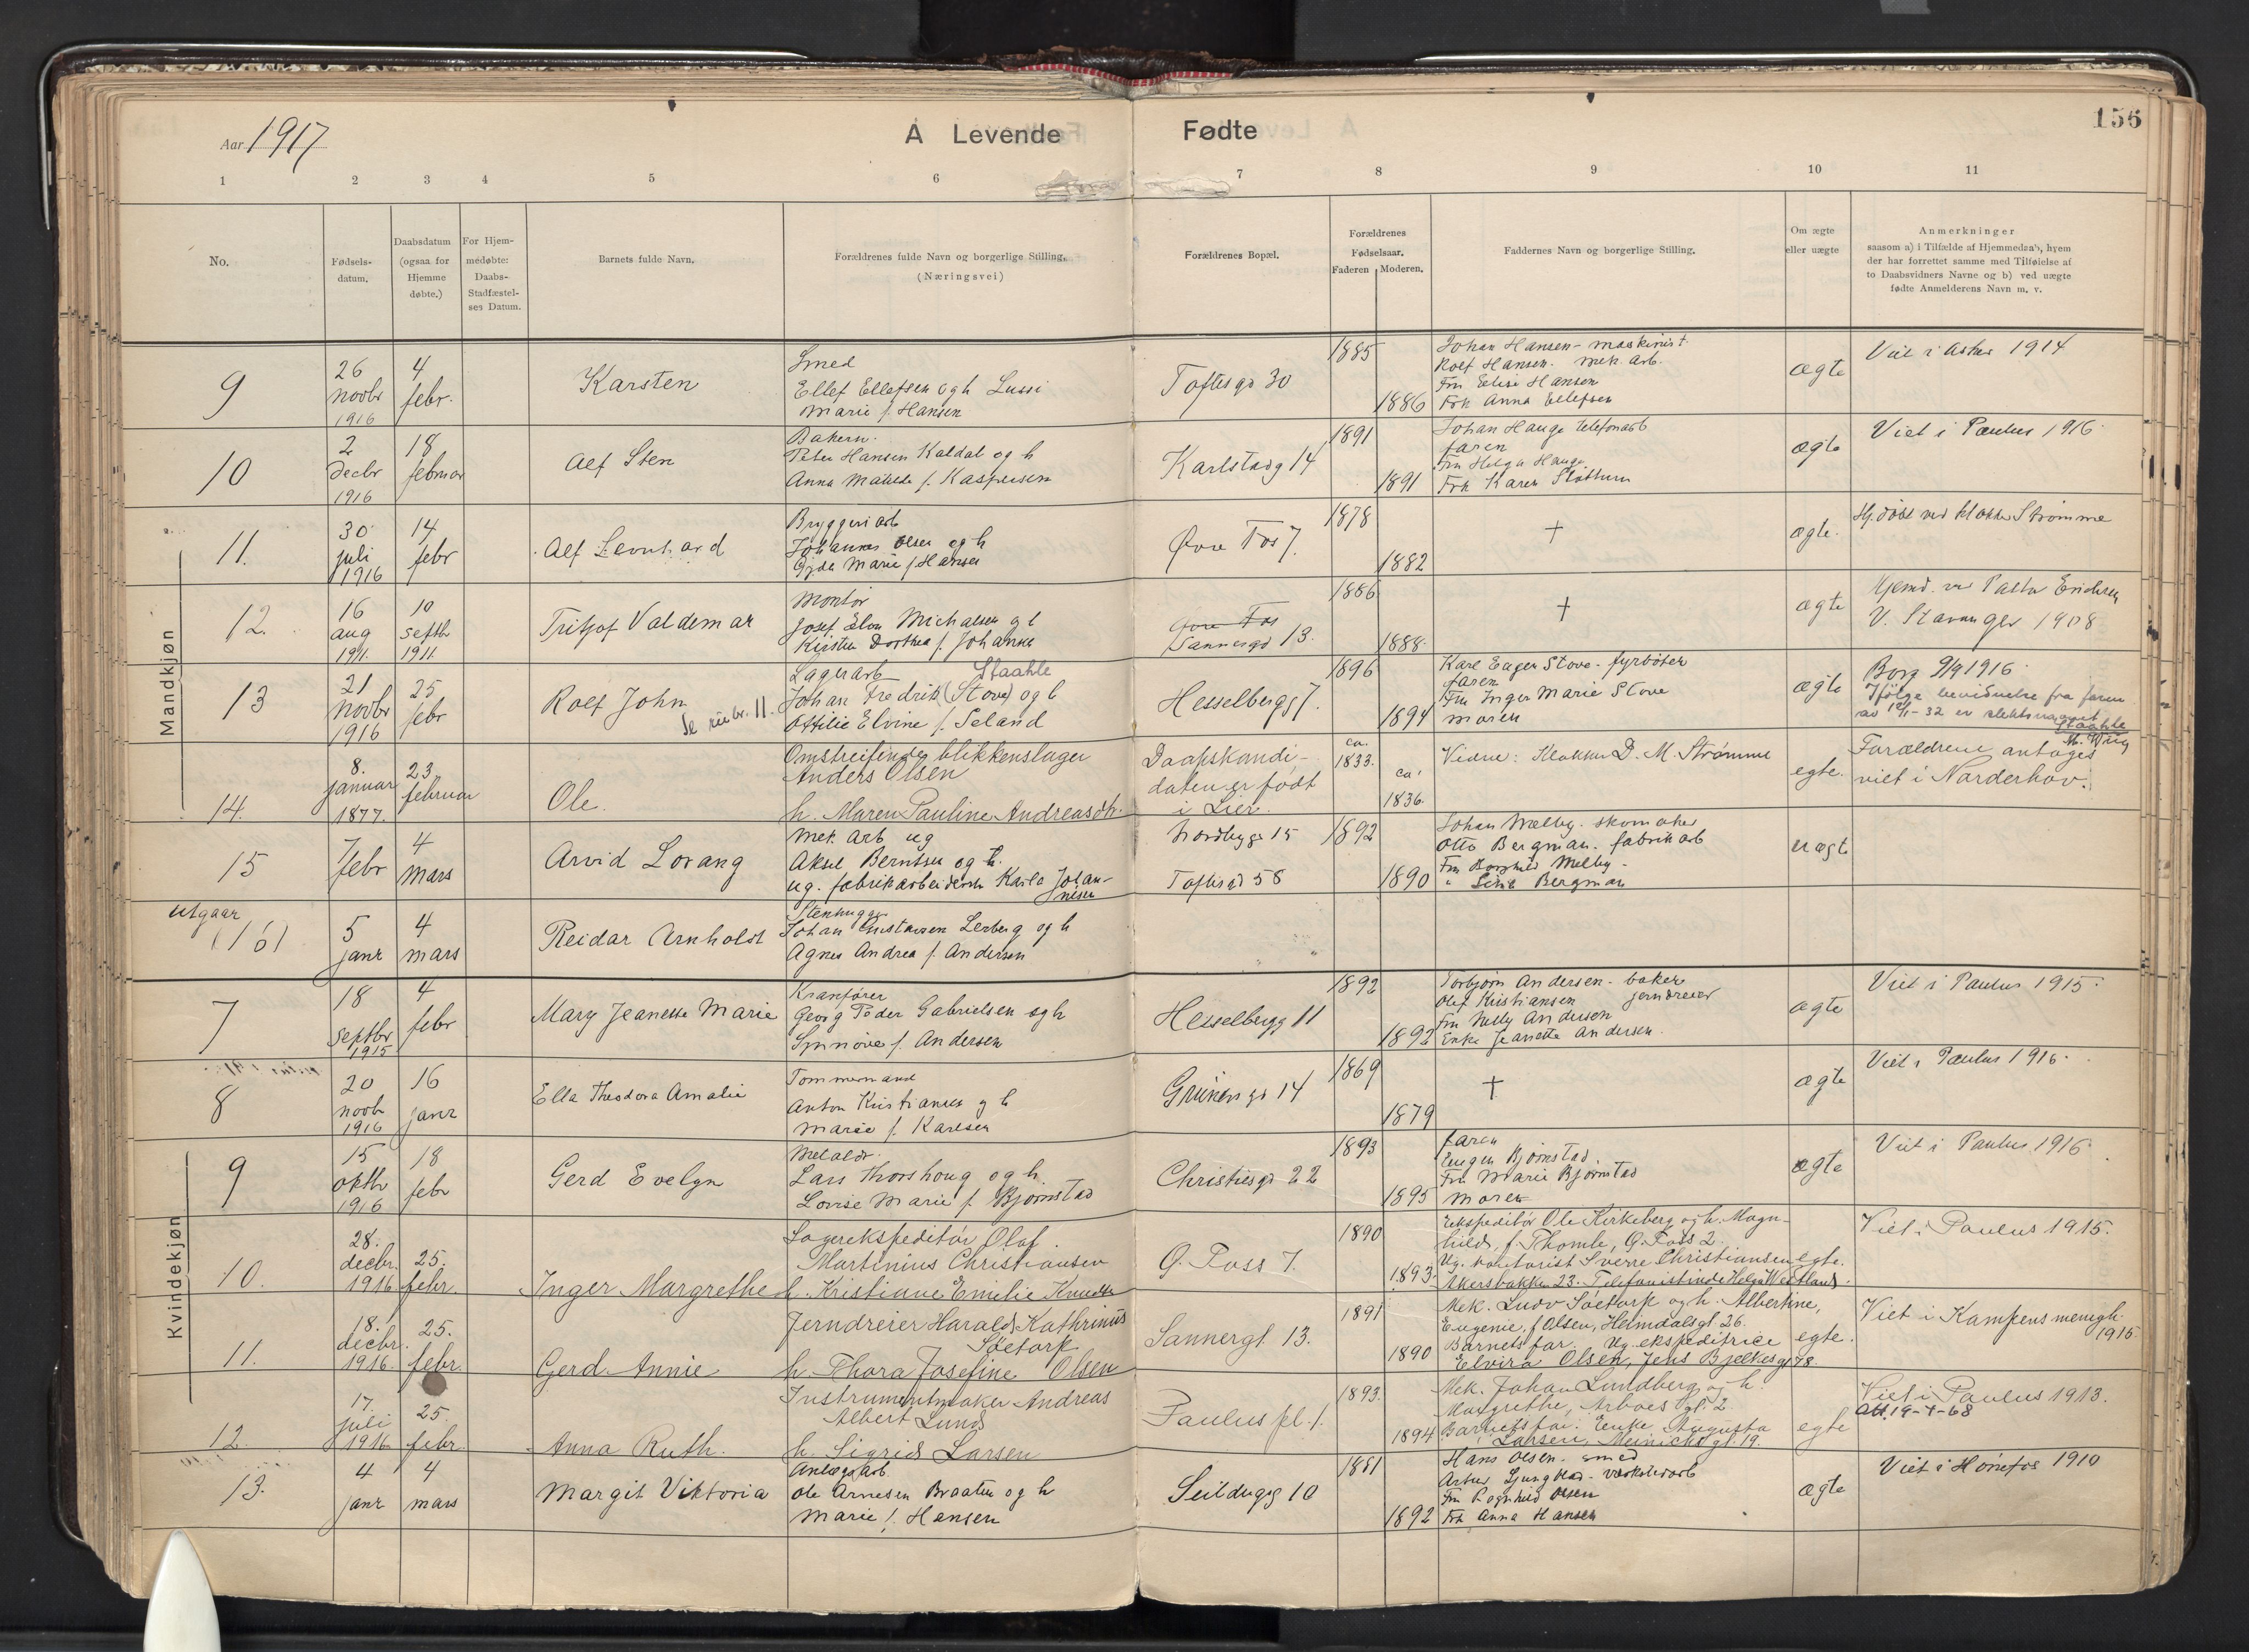 156
Aar 1917
A Levende Fødte
1 2 3 4 5 6 7 8 9 10 11
No.
Fødsels-
datum.
Daabsdatum
(ogsaa for
Hjemme
døbte.)
For Hjem-
medøbte:
Daabs-
Stadfæstel-
ses Datum.
Barnets fulde Navn.
Forældrenes fulde Navn og borgerlige Stilling.
(Næringsvei)
Forældrenes Bopæl.
Forældrenes
Fødselsaar.
Faderen Moderen.
Faddernes Navn og borgerlige Stilling.
Om ægte
eller uægte
Anmerkninger
saasom a) i Tilfælde af Hjemmedaab, hvem
der har forrettet samme med Tilføielse af
to Daabsvidners Navne og b) ved uægte
fødte Anmelderens Navn m. v.
Mandkjøn
9
26
novbr
1916
4
febr.
Karsten
Smed
Ellef Ellefsen og h Lussi
Marie f. Hansen
Toftesgd 30
1885
1886
Johan Hansen - maskinist
Rolf Hansen. mek. arb.
Fru Elise Hansen
Frk Anna Ellefsen
ægte
Viet i Asker 1914
10
2
decbr
1916
18
februar
Alf Sten
Bakersv.
Peter Hansen Kaldal og h
Anna Matilde f. Kaspersen
Karlstadg 14
1891
1891
Johan Hauge telefonarb
faren
Fru Helga Hauge
Frk Karen
ægte
Viet i Paulus 1916
11.
30
juli
1916
14
febr
Alf Leonhard
Bryggeriarb
Johannes Olsen og h
Gyda Marie f Hansen
Øvre Fos 7.
1878
1882
+
ægte.
Hj. døbt ved klokker Strømme
12.
16
aug
1911.
10
septbr
1911.
Tritjof Valdemar
Montør
Josef Elon Michalsen og h
Kirsten Dorthea f. Johansen
Øvre Fos
Sannergd 13.
1886
1888
+
ægte
Hjemd. ved Pastor
V. Stavanger 1908
13
21
novbr
1916
25
febr
Rolf John
Se rubr. 11.
Lagerarb Staahle
Johan Fredrik (Stove) og h
Ottilie Elvine f. Seland
Hesselbergg 7.
1896
1894
Karl Eugen Stove - fyrbøter
faren
Fru Inger Marie Stove
moren
ægte
Borg 9/9 1916
Ifølge bevidnelse fra faren
av -32 er slektsnavnet
Staahle
14.
8.
januar
1877.
23.
februar
Ole.
Omstreifende blikkenslager
Anders Olsen
h. Maren Pauline Andreasdtr.
Daapskandi-
daten er født
i Lier.
ca.
1833.
ca.
1836.
Vidne: Klokker D. M. Strømme
egte.
Forældrene antages
viet i Norderhov.
15
7
febr
4
mars
Arvid Lorang
Mek. Arb ug
Aksel Berntsen og h.
ug. fabrikarbeiderske Karla Johan-
nesen
Nordbygd 15
Toftesgd 58
1892
1890
Johan Melby. skomaker
Otto Bergman. fabrikarb
Fru Borghild Melby -
" Lina Bergman
uægt
utgaar
(16)
5
janr
4
mars
Reidar Arnholdt
Stenhugger
Johan Gustavsen Lerberg og h
Agnes Andrea f. Andersen
Kvindekjøn
7
18
septbr
1915
4
febr
Mary Jeanette Marie
Kranfører
Georg Peder Gabrielsen og h
Synnøve f. Andersen
Hesselbergg 11
1892
1892
Torbjørn Andersen - baker
Olef Kristiansen jerndreier
Fru Nelly Andersen
Enke Jeanette Andersen.
ægte
Viet i Paulus 1915.
8
20
novb
1916
16
janr
Ella Theodora Amalie
Tømmermand
Anton Kristiansen og h
Marie f. Karlsen
Grünersgd 14
1869
1879
+
ægte
Viet i Paulus 1916.
9
15
oktbr
1916
18
febr
Gerd Evelyn
Metaldr.
Lars Thorshoug og h.
Lovise Marie f. Bjørnstad
Christiesgd 22
1893
1895
faren
Eugen Bjørnstad.
Fru Marie Bjørnstad
moren
ægte
Viet i Paulus 1916.
10.
28.
decbr.
1916
25.
febr.
Inger Margrethe
Lagerekspeditør Olaf
Martinius Christiansen
h. Kristiane Emilie Knudsen
Ø. Foss 7.
1890
1893.
Ekspeditør Ole Kirkeberg og h. Magn-
hild, f. Thomle, Ø. Foss 2.
Ug. kontorist Sverre Christiansen
Akersbakken 23. Telefonistinde Helga Westland.
egte.
Viet i Paulus 1915.
11.
18.
decbr.
1916.
25.
febr.
Gerd Annie
Jerndreier Harald Kathrinus
Söetorp
h. Thora Josefine Olsen
Sannergt. 13.
1891
1890
Mek. Ludv Söetorp og h. Albertine,
Eugenie, f Olsen, Heimdalsgt 26.
Barnets far, Ug. ekspeditrice
Elvira Olsen, Jens Bjelkesgt 78.
egte.
Viet i Kampens menigh.
1915
12.
17.
juli
1916
25.
febr.
Anna Ruth.
Instrumentmaker Andreas
Albert Lund
h. Sigrid Larsen
Paulus pl. 1.
1893.
1894
Mek. Johan Lundberg og h.
Margrethe, Arboes gt. 2.
Barnets far. Enke Augusta
Larsen, Meinichs gt. 19.
egte
Viet i Paulus 1913.
Att. 19-7-68
13.
4
janr
4
mars
Margit Viktoria
Anlægsarb
Ole Arnesen Braaten og h
Marie f. Hansen
Seildugsg 10
1881
1892
Hans Olsen. smed
Artur Ljungblad - verkstedarb
Fru Ragnhild Olsen
Frk Anna Hansen
ægte
Viet i Hønefos 1910